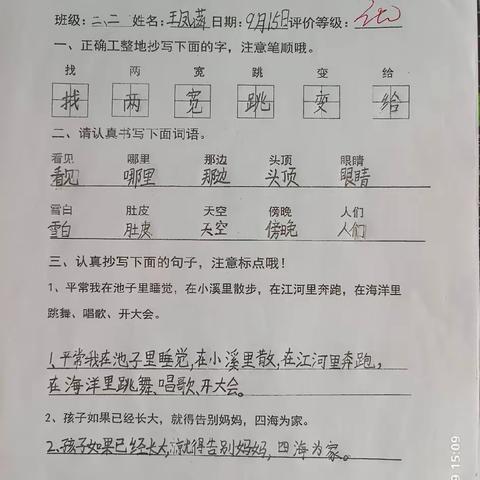 班级:二、二 姓名:王凤 日期:9月15日评价等级:
一、正确工整地抄写下面的字，注意笔顺哦。
找 两 宽 跳 变 给
找 两 宽 跳 变 给
二、请认真书写下面词语。
看见 哪里 那边 头顶 眼睛
看见 哪里 那边 头顶 眼睛
雪白 肚皮 天空 傍晚 人们
雪白 肚皮 天空 傍晚 人们
三、认真抄写下面的句子，注意标点哦！
1、平常我在池子里睡觉，在小溪里散步，在江河里奔跑，在海洋里
跳舞、唱歌、开大会。
1、平常我在池子里睡觉,在小溪里散,在江河里奔跑,
在海洋里跳舞、唱歌、开大会。
2、孩子如果已经长大，就得告别妈妈，四海为家。
2、孩子如果已经长大,就得告别妈妈,四海为家。
15:09